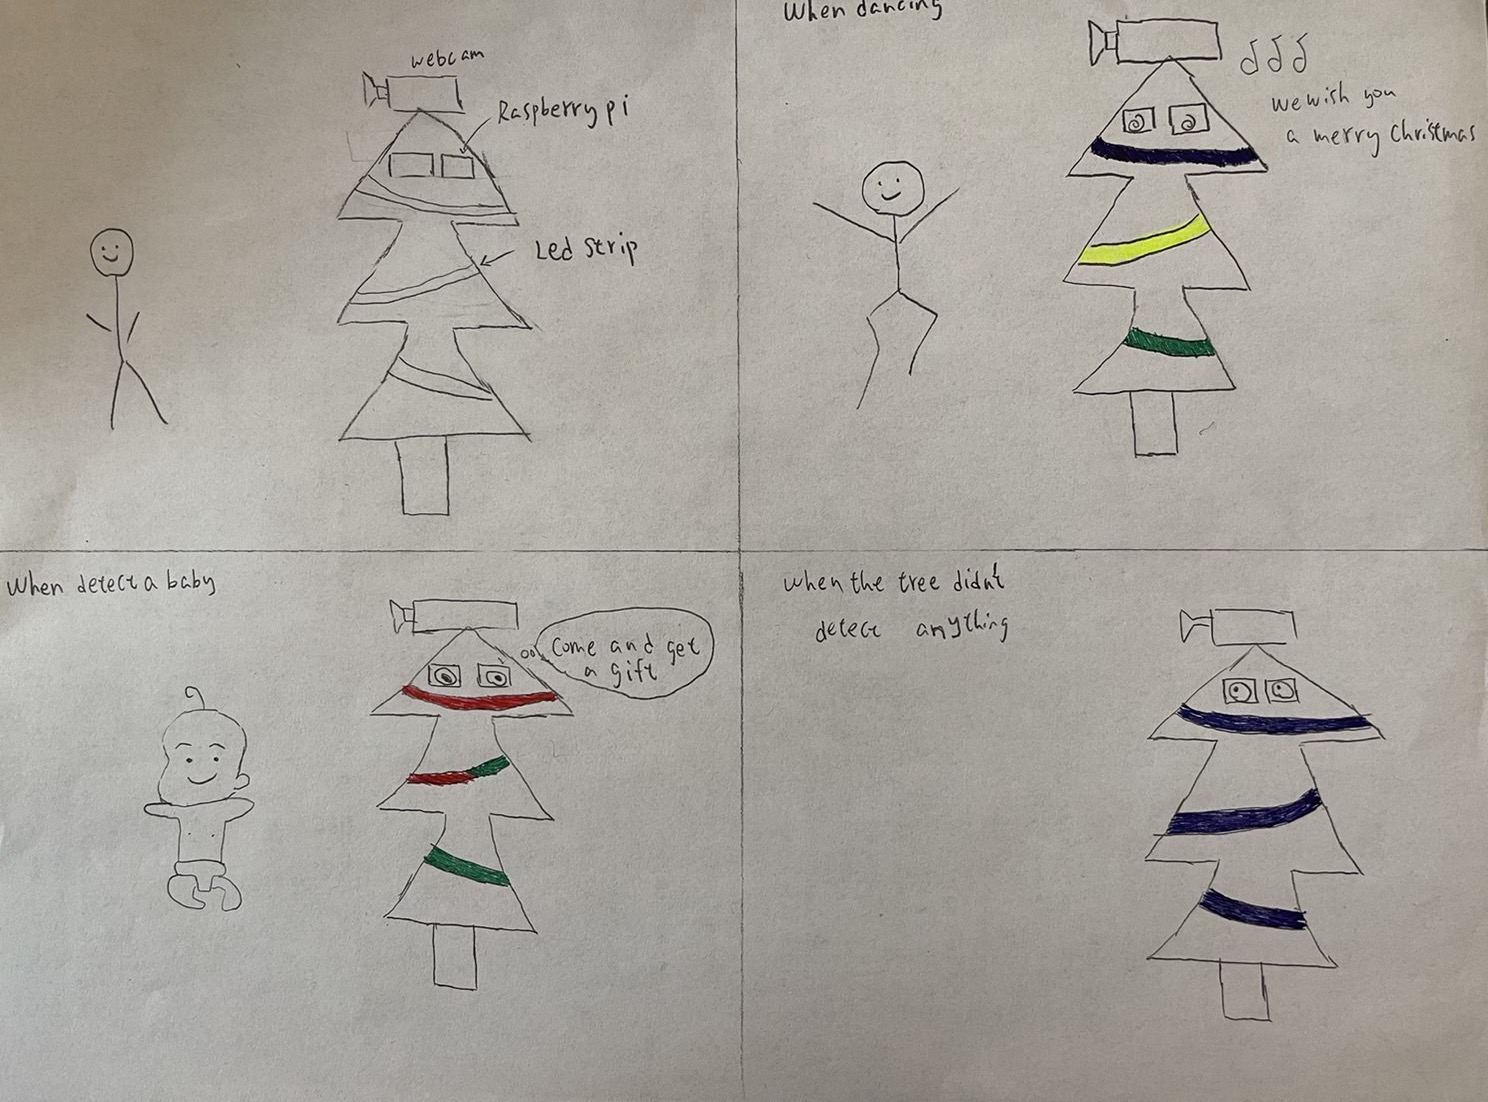 webcam
Raspberry pi
Led strip
When dancing
we wish you
a merry Christmas
When detect a baby
Come and get
a gift
when the tree didn't
detect anything